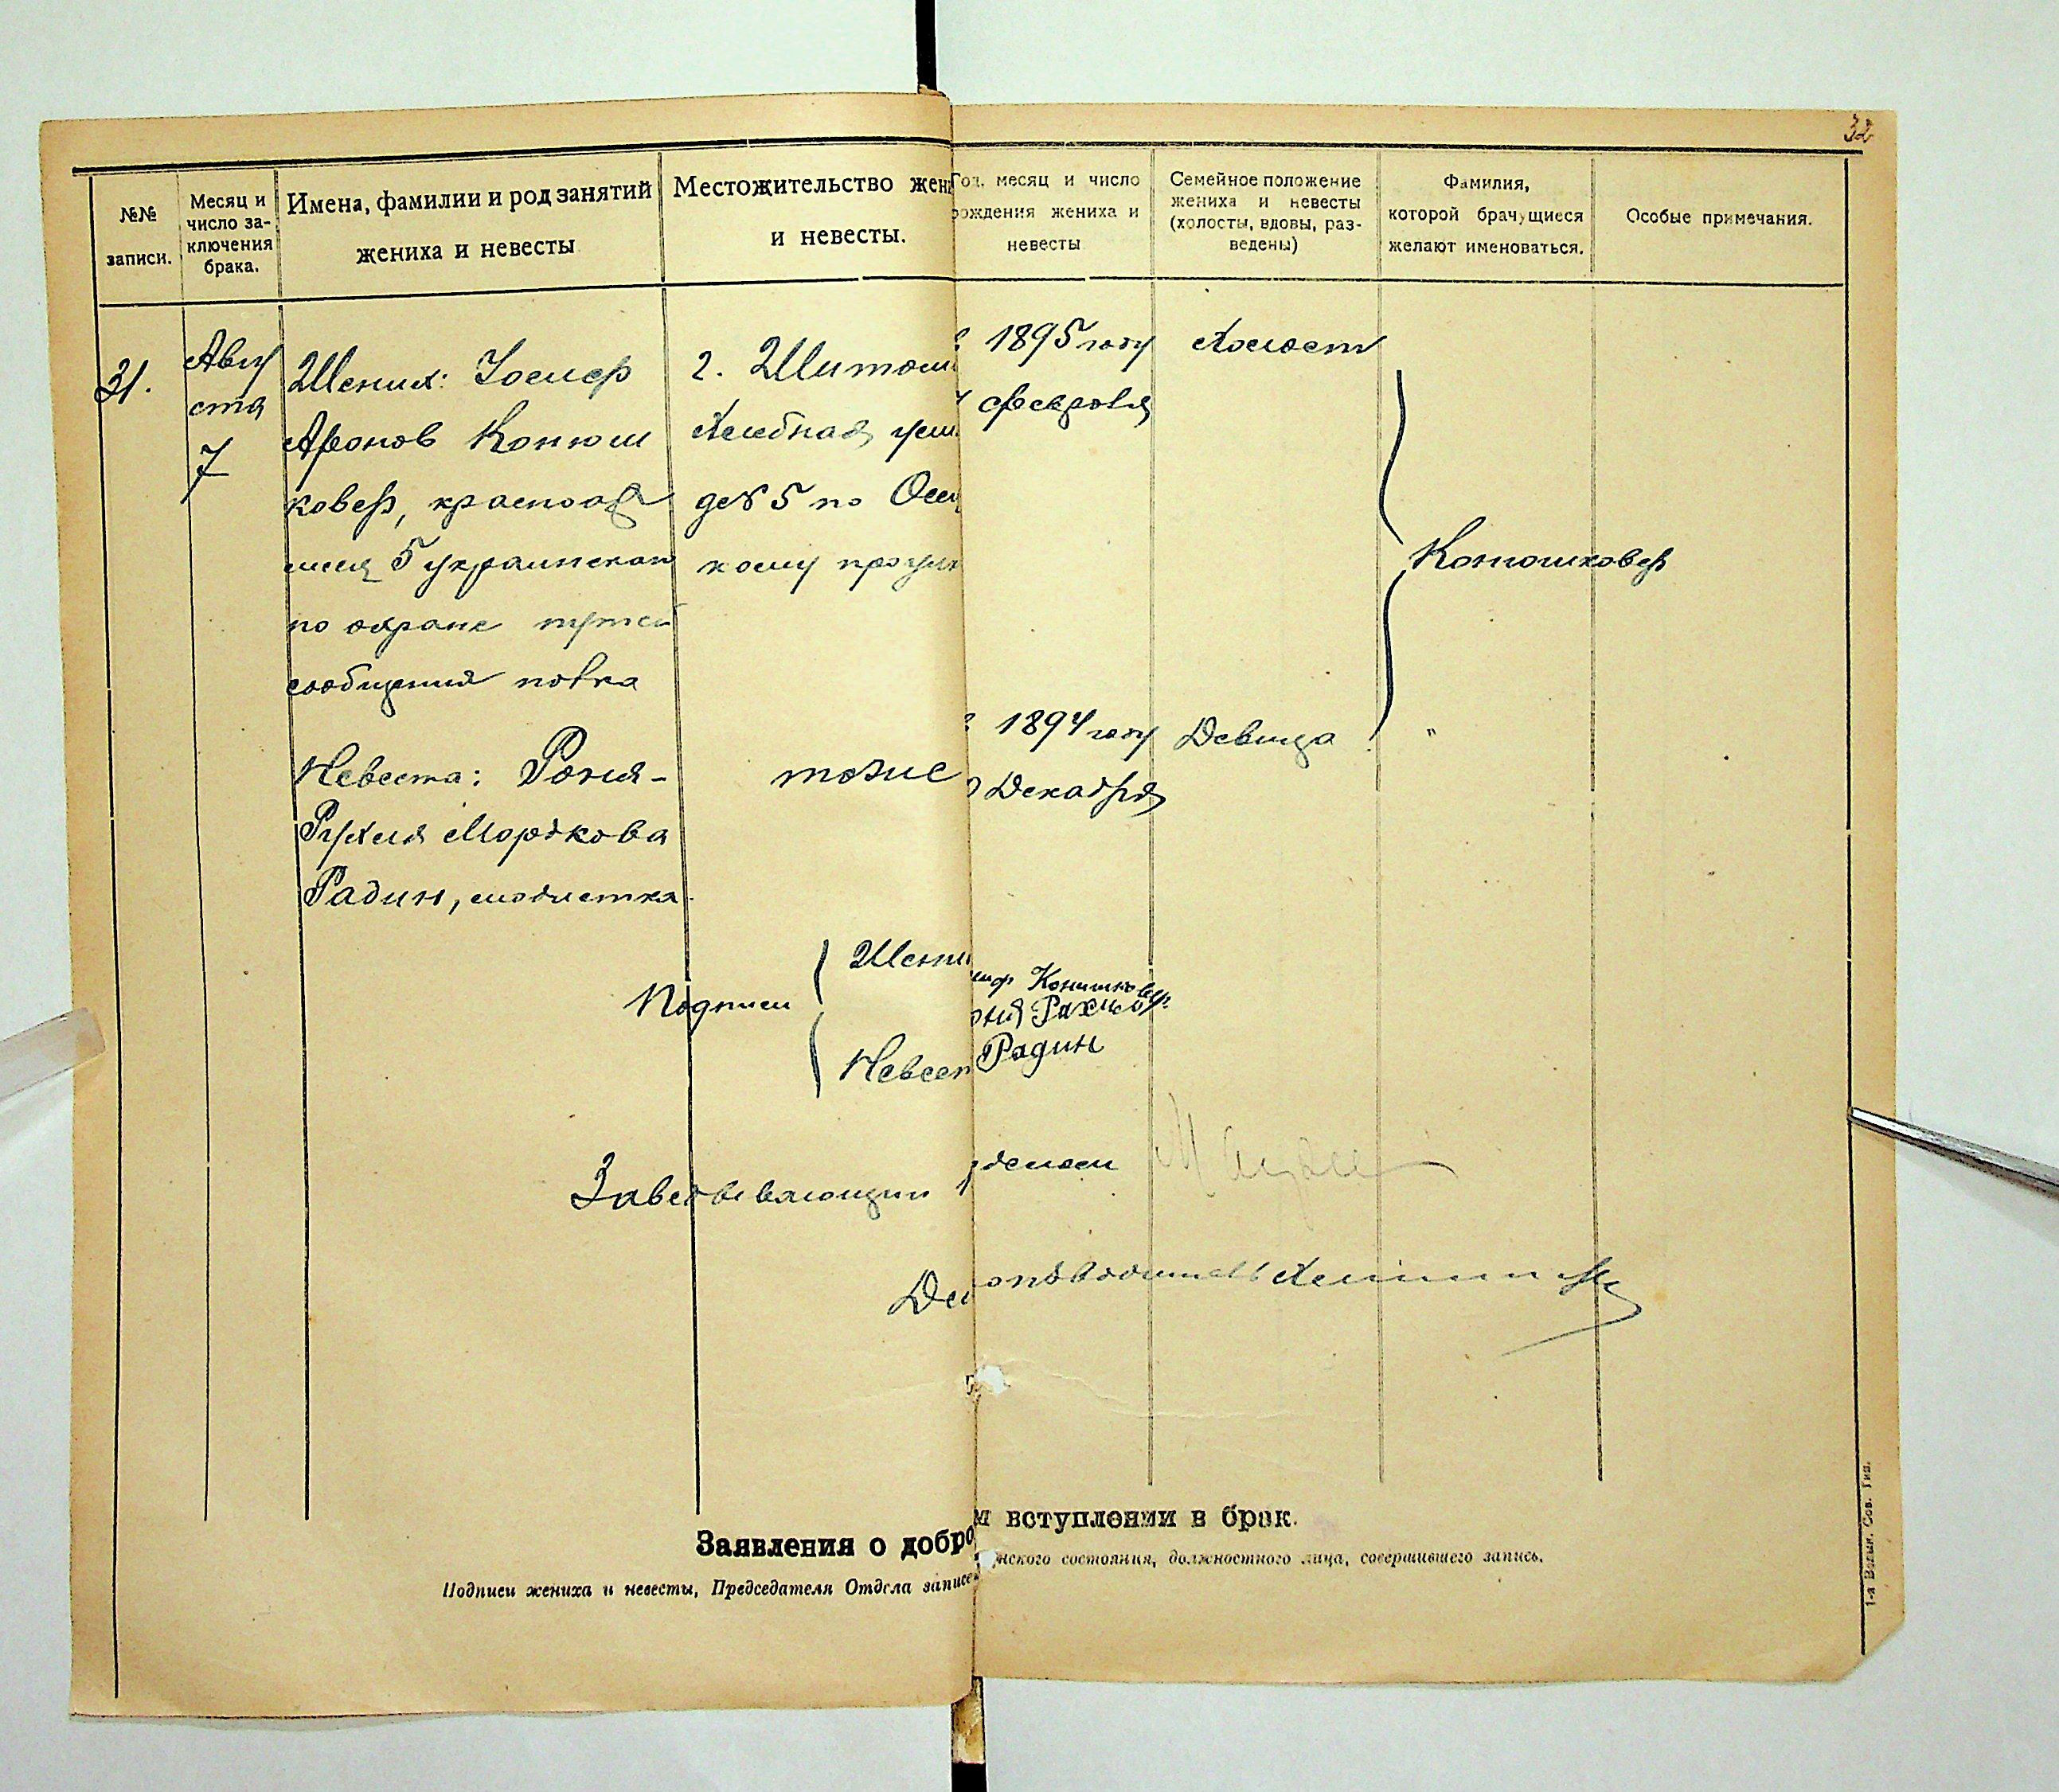 32
№№ записи.
Месяц и число за-ключения брака.
Имена, фамилии и род занятий жениха и невесты
Местожительство жени
и невесты.
Год, месяц и число рождения жениха и невесты
Семейное положение жениха и невесты (холосты, вдовы, раз-ведены)
Фамилия, которой брачущиеся желают именоваться.
Особые примечания.
31.
Авгу
ста
7
Жених: Иосиф
Аронов Конюш
ковер, красноар
меец 5 украинскаго
по охране путей
сообщения полка
г. Житом
Хлебная ули
дом № 5 по
кому проулк
1895 году
февраля
Холост
Конюшковер
Невеста: Роня-
Рухля Мордкова
Радин, модистка.
тоже
1894 году
Декабря
Девица
"
Подписи
Жени
Невест
иф Конюшковер
оня Рахиль
Радин
Заведывающий
делом
Дел
опроизводитель
Заявления о добро
м вступлении в брак.
Подписи жениха и невесты, Председателя Отдела записе
нского состояния, должностного лица, совершившего запись.
1-я Волын. Сов. Тип.